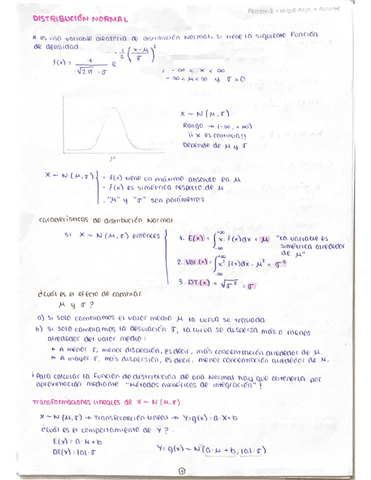 DISTRIBUCIÓN NORMAL
X es una variable aleatoria de distribución Normal, si tiene la siguiente función
de densidad.
f(x) = 1/(√2π · σ) e^(-1/2 ((x-μ)/σ)²) ; -∞ < x < ∞
-∞ < μ < ∞ y σ > 0
X ~ N(μ, σ)
Rango → (-∞, +∞)
X es continua!!
Depende de μ y σ
μ
X ~ N(μ, σ) { - f(x) tiene un máximo absoluto en μ
- f(x) es simétrica respecto de μ
- "μ" y "σ" son parámetros
características de distribución Normal
si X ~ N(μ, σ) entonces
1. E(x) = ∫_{-∞}^{+∞} x · f(x)dx = μ "La variable es
simétrica alrededor
de μ"
2. Var(x) = ∫_{-∞}^{+∞} x² f(x)dx - μ² = σ²
3. DT(x) = √σ² = σ
¿cuál es el efecto de cambiar
μ y σ?
a) si solo cambiamos el valor medio μ la curva se traslada.
b) si solo cambiamos la desviación σ, la curva se dispersa más o menos
alrededor del valor medio:
* A menor σ, menos dispersión, es decir, más concentración alrededor de μ.
* A mayor σ, más dispersión, es decir, menor concentración alrededor de μ.
¡Para calcular la función de distribución de una Normal hay que obtenerla por
aproximación mediante "Métodos numéricos de integración"!
Transformaciones lineales de X ~ N(μ, σ)
X ~ N(μ, σ) → Transformación lineal → Y = g(x) = a·X + b
¿cuál es el comportamiento de Y?
E(Y) = a·μ + b
DT(Y) = |a|·σ
Y = g(x) ~ N(a·μ + b, |a|·σ)